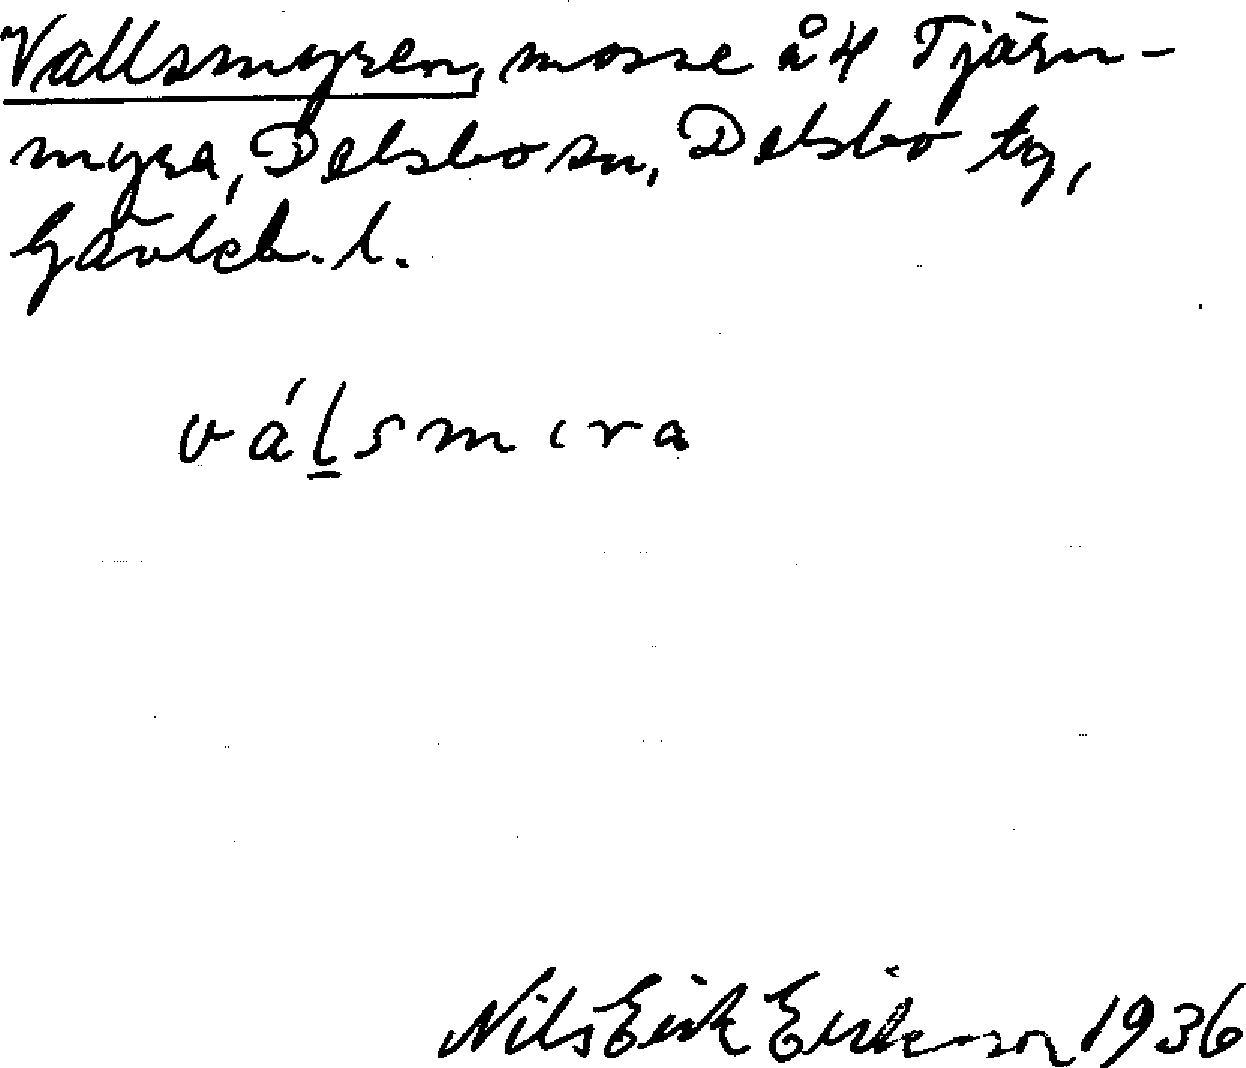 Vallsmyren, mosse å 4 Tjärn-
myra, Delsbo sn, Delsbo tg,
Gävleb. l.
válsmıra
Nils Erik Eriksson 1936